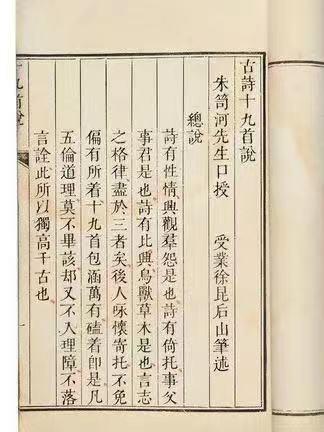 古詩十九首說
朱笥河先生口授 受業徐昆后山筆述
總說
詩有性情興觀羣怨是也詩有倚托事父
事君是也詩有比興鳥獸草木是也言志
之格律盡於三者矣後人咏懷寄托不免
偏有所着十九首包涵萬有磕着即是凡
五倫道理莫不畢該却又不入理障不落
言詮此所以獨高千古也
九首說
一